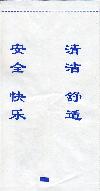 安全 快乐
清洁 舒适